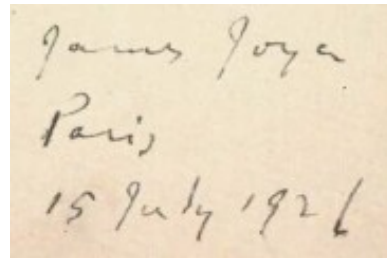 James Joyce
Paris
15 July 1926